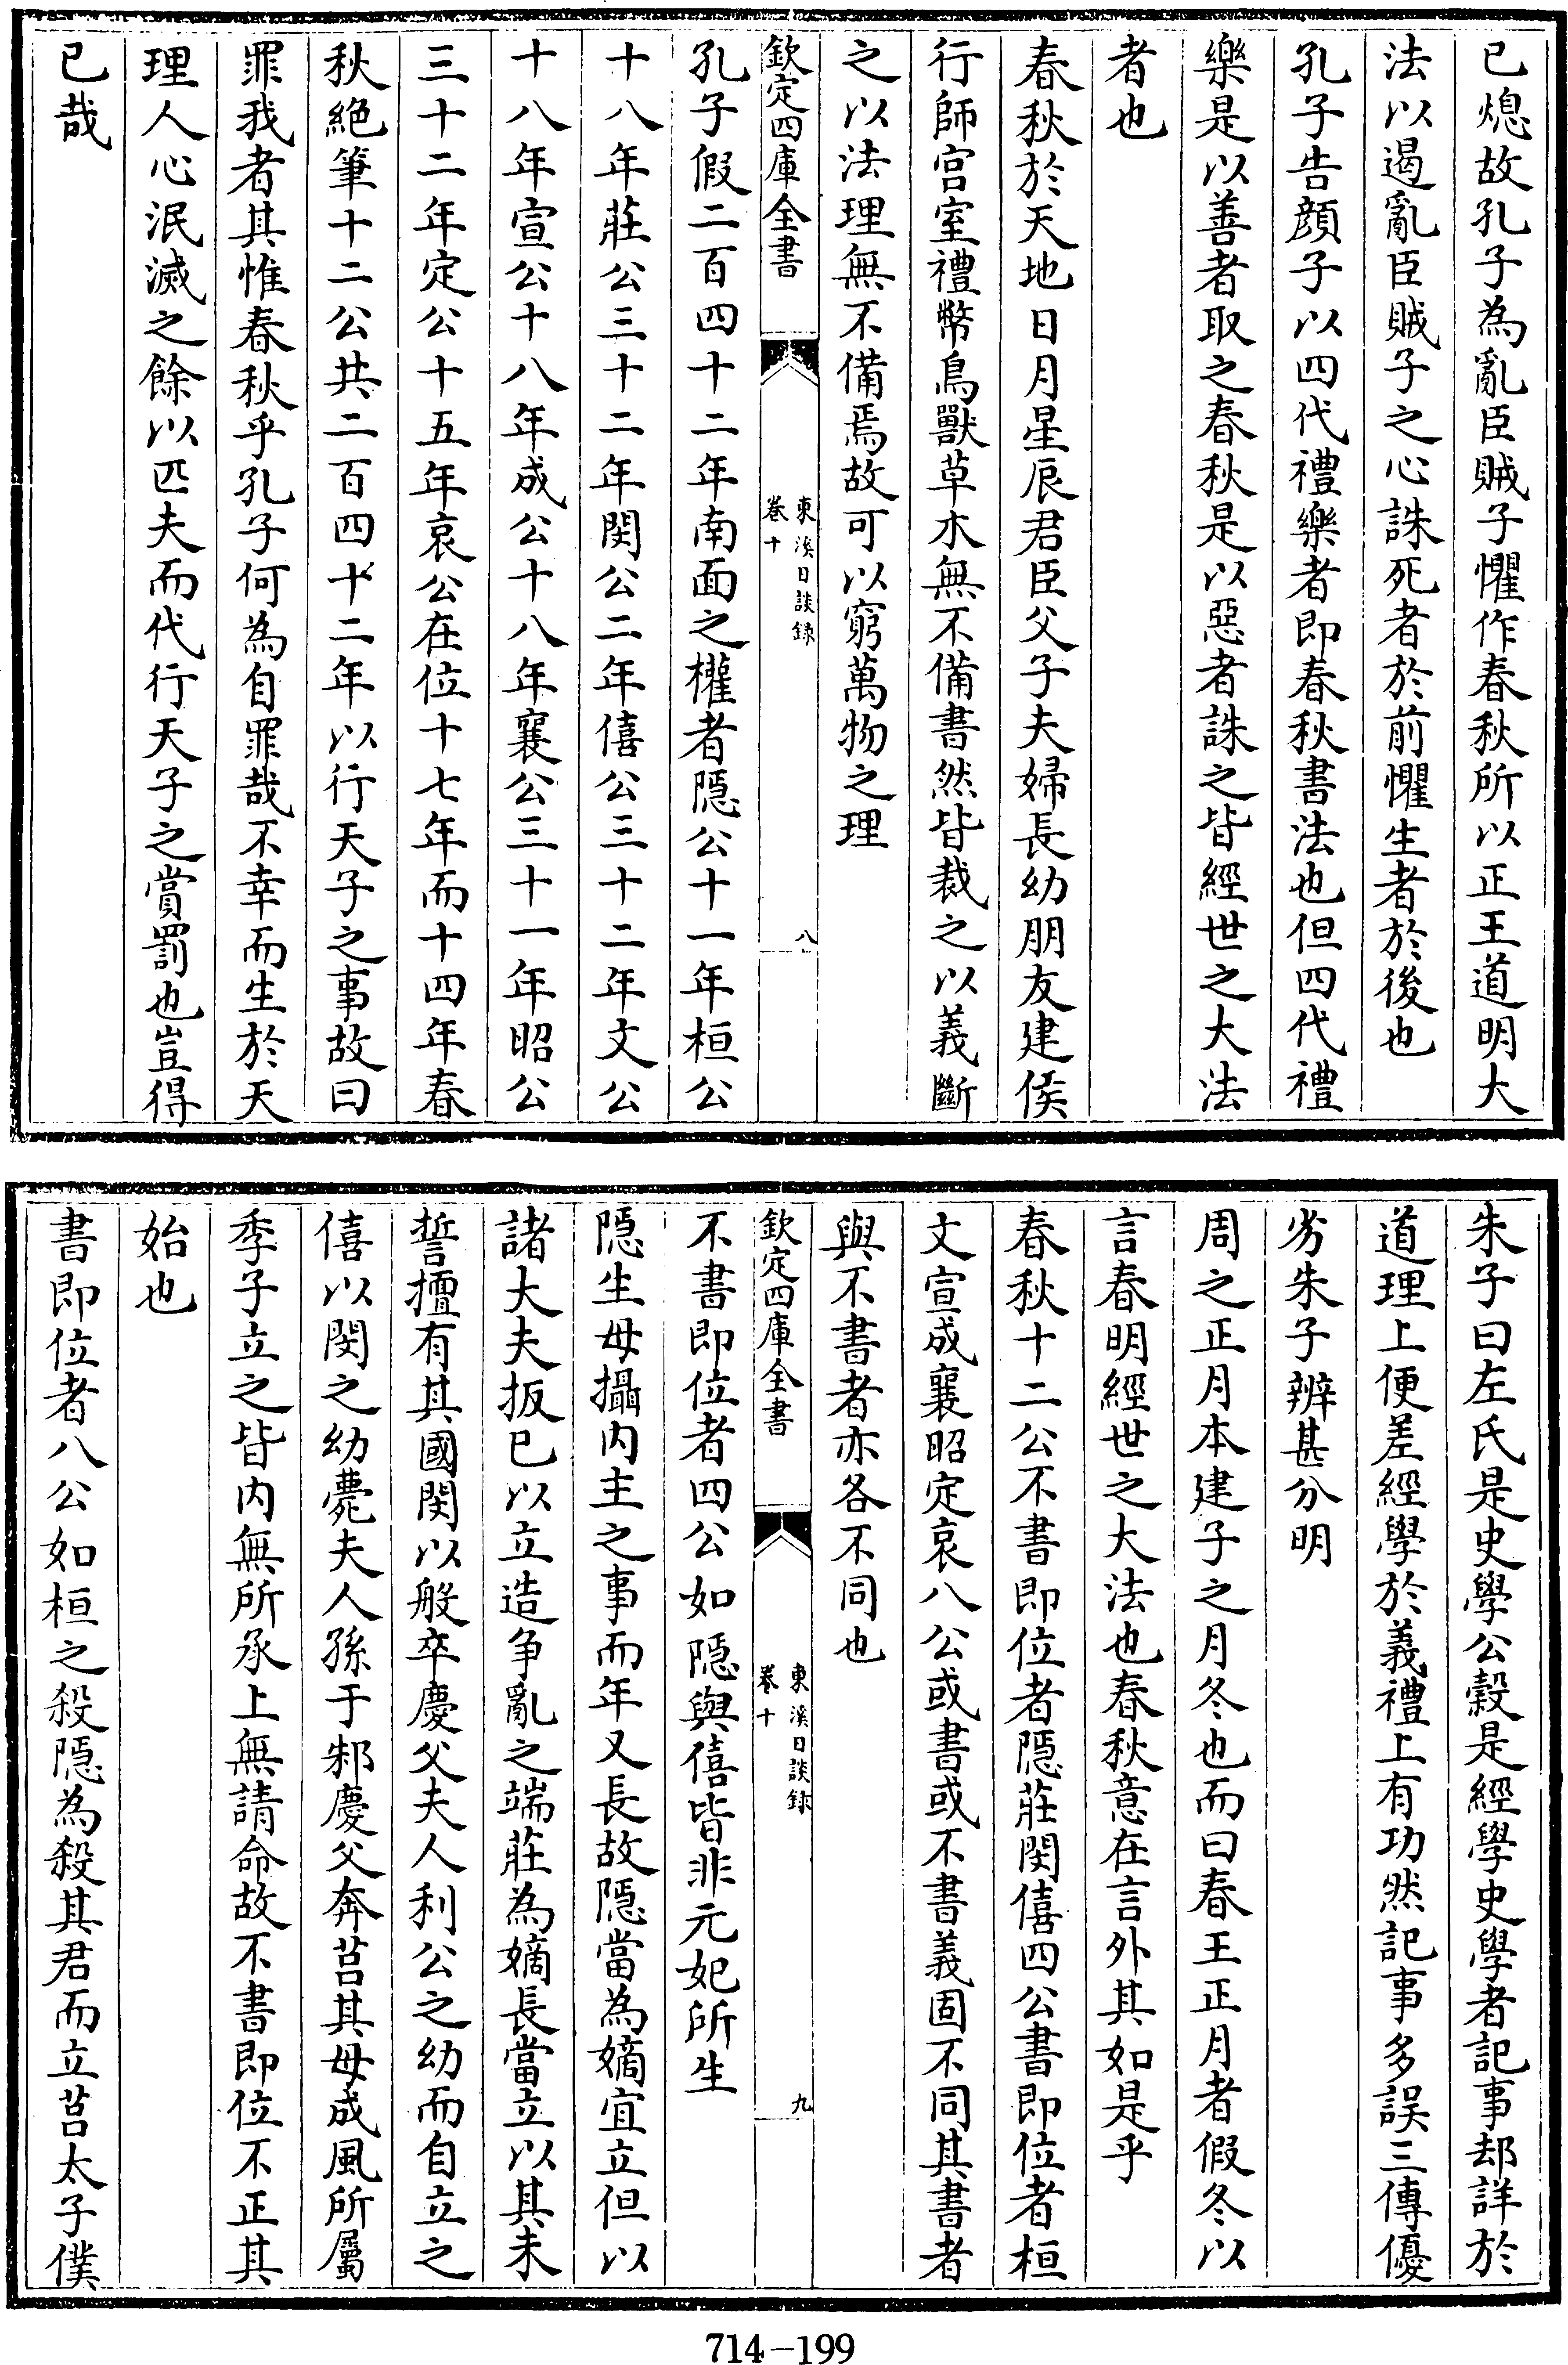 已熄故孔子為亂臣賊子懼作春秋所以正王道明大
法以遏亂臣賊子之心誅死者於前懼生者於後也
孔子告顔子以四代禮樂者即春秋書法也但四代禮
樂是以善者取之春秋是以惡者誅之皆經世之大法
者也
春秋於天地日月星辰君臣父子夫婦長幼朋友建侯
行師宫室禮幣鳥獸草木無不備書然皆裁之以義斷
之以法理無不備焉故可以窮萬物之理
欽定四庫全書
東溪日談録
卷十
八
孔子假二百四十二年南面之權者隱公十一年桓公
十八年莊公三十二年閔公二年僖公三十二年文公
十八年宣公十八年成公十八年襄公三十一年昭公
三十二年定公十五年哀公在位十七年而十四年春
秋絶筆十二公共二百四十二年以行天子之事故曰
罪我者其惟春秋乎孔子何為自罪哉不幸而生於天
理人心泯滅之餘以匹夫而代行天子之賞罰也豈得
已哉
朱子曰左氏是史學公穀是經學史學者記事却詳於
道理上便差經學於義禮上有功然記事多誤三傳優
劣朱子辨甚分明
周之正月本建子之月冬也而曰春王正月者假冬以
言春明經世之大法也春秋意在言外其如是乎
春秋十二公不書即位者隱莊閔僖四公書即位者桓
文宣成襄昭定哀八公或書或不書義固不同其書者
與不書者亦各不同也
欽定四庫全書
東溪日談録
卷十
九
不書即位者四公如隱與僖皆非元妃所生
隱生母攝内主之事而年又長故隱當為嫡宜立但以
諸大夫扳已以立造争亂之端莊為嫡長當立以其未
誓擅有其國閔以般卒慶父夫人利公之幼而自立之
僖以閔之幼薨夫人孫于邾慶父奔莒其母成風所屬
季子立之皆内無所承上無請命故不書即位不正其
始也
書即位者八公如桓之殺隱為殺其君而立莒太子僕
714-199